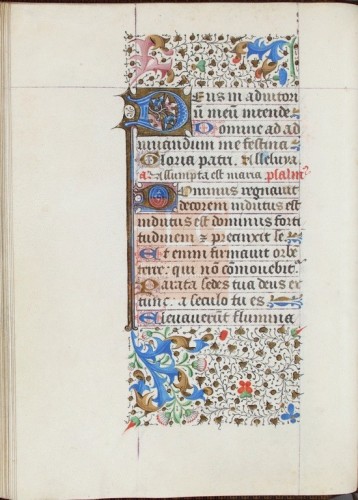 Deus in adiutori
ū meū intende.
Domine ad ad
iuuandum me festina
Gloria patri. Alleluya
a. Assumpta est maria psalm⁹
Dominus regnauit
decorem indutus est
indutus est dominus forti
tudinem ⁊ precinxit se
Et enim firmauit orbē
terre. qui nō comouebit᷑
Parata sedes tua deus ex
tunc. a seculo tu es
Eleuauerūt flumina